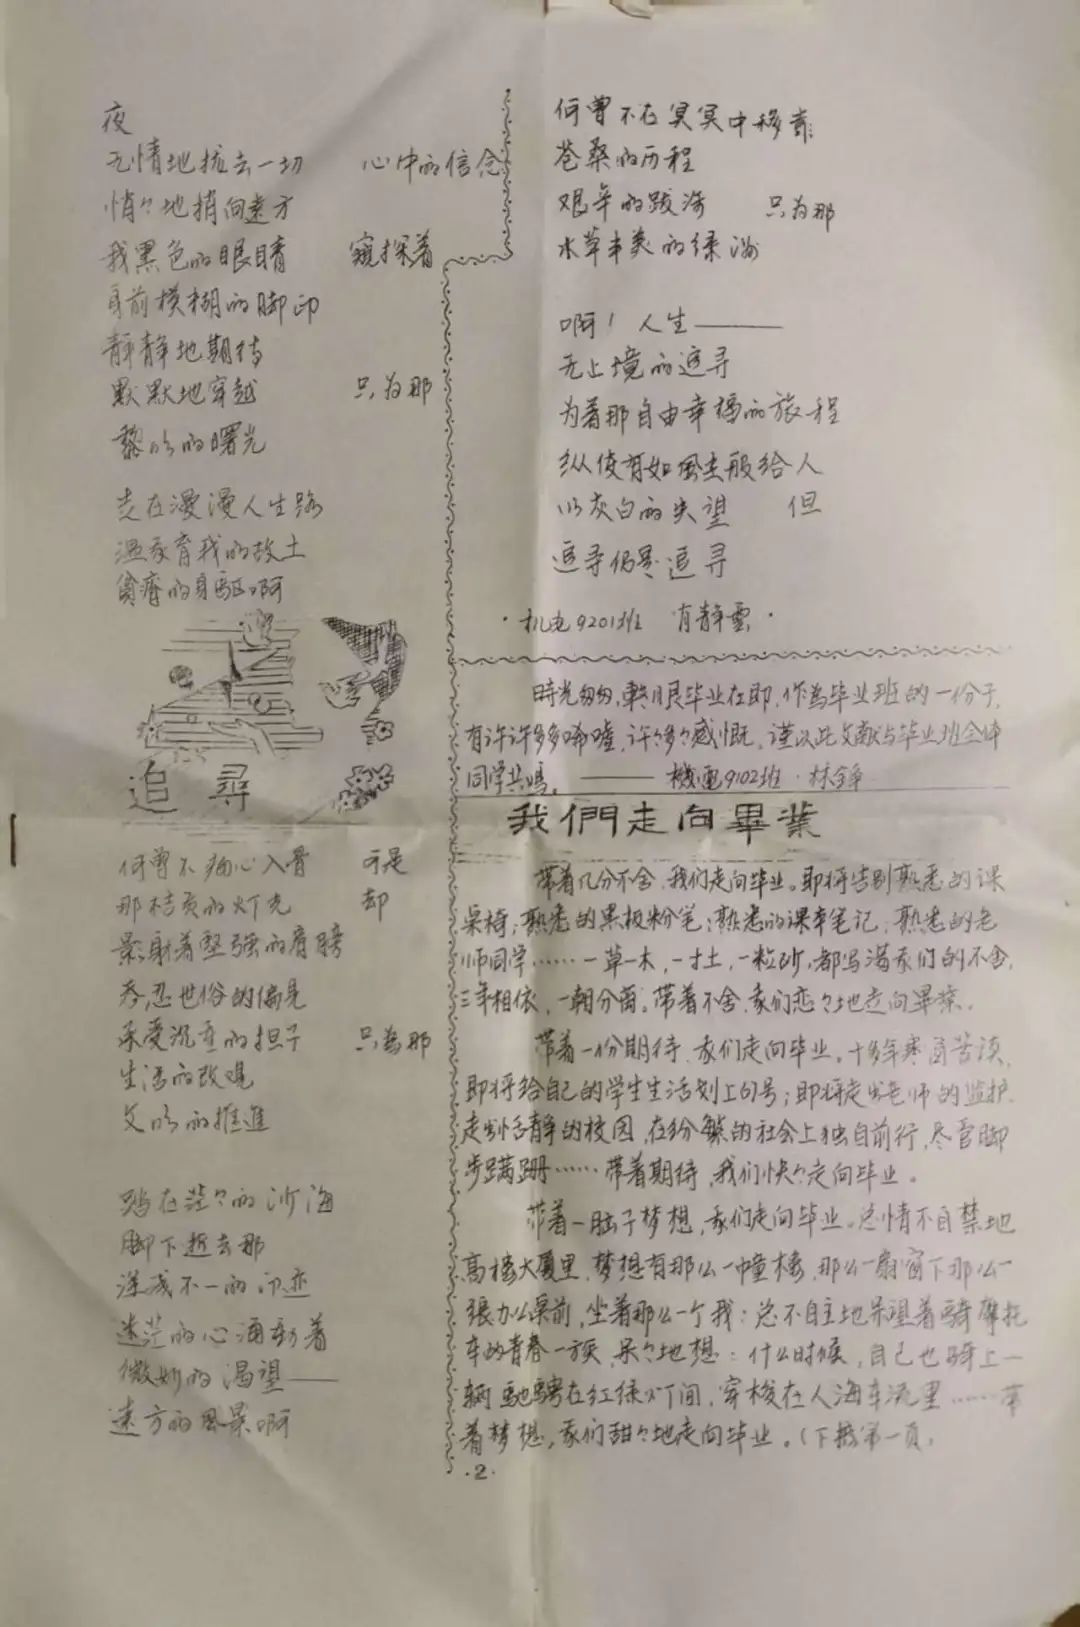 夜
无情地掠去一切 心中的信念
悄々地捎向遠方
我黑色的眼睛 窺探着
身前模糊的脚印
静静地期待
默默地穿越 只为那
黎明的曙光
走在漫漫人生路
养育我的故土
贫瘠的身躯啊
追尋
何曾不痛心入骨 于是
那桔黄的灯光 却
影射着坚强的肩膀
吞忍世俗的偏見
承受沉重的担子 只為那
生活的改观
文明的推進
踏在茫々的沙海
脚下逝去那
深浅不一的印迹
迷茫的心涌動着
微妙的渴望——
遠方的風景啊
何曾不在冥冥中移動
苍桑的历程
艰辛的跋涉 只为那
水草丰美的绿洲
啊！人生——
无止境的追寻
为着那自由幸福的旅程
纵使有如風尘般给人
以灰白的失望 但
追寻仍是追寻
·机电9201班 肖静雲·
時光匆匆,転眼毕业在即,作為毕业班的一份子,
有许许多多唏嘘,许々多々感慨,谨以此文献与毕业班全体
同学共鸣。——機電9102班·林锋
我們走向畢業
带着几分不舍,我们走向毕业。即将告别熟悉的课
桌椅;熟悉的黑板粉笔;熟悉的课本笔记;熟悉的老
师同学……一草一木,一寸土,一粒砂,都写满我们的不舍,
三年相依,一朝分离。带着不舍,我们恋々地走向畢業。
带着一份期待,我们走向毕业。十多年寒窗苦读,
即将给自己的学生生活划上句号;即将走出老师的监护,
走出恬静的校园,在纷繁的社会上独自前行,尽管脚
步蹒跚……带着期待,我们快々走向毕业。
带着一脑子梦想,我们走向毕业。总情不自禁地
高楼大厦里,梦想有那么一幢楼,那么一扇窗下那么一
張办公桌前,坐着那么一个我;总不自主地呆望着骑摩托
车的青春一族,呆々地想:什么时候,自己也骑上一
辆,馳騁在红绿灯间,穿梭在人海车流里……带
着梦想,我们甜々地走向毕业。(下转第一頁
·2·